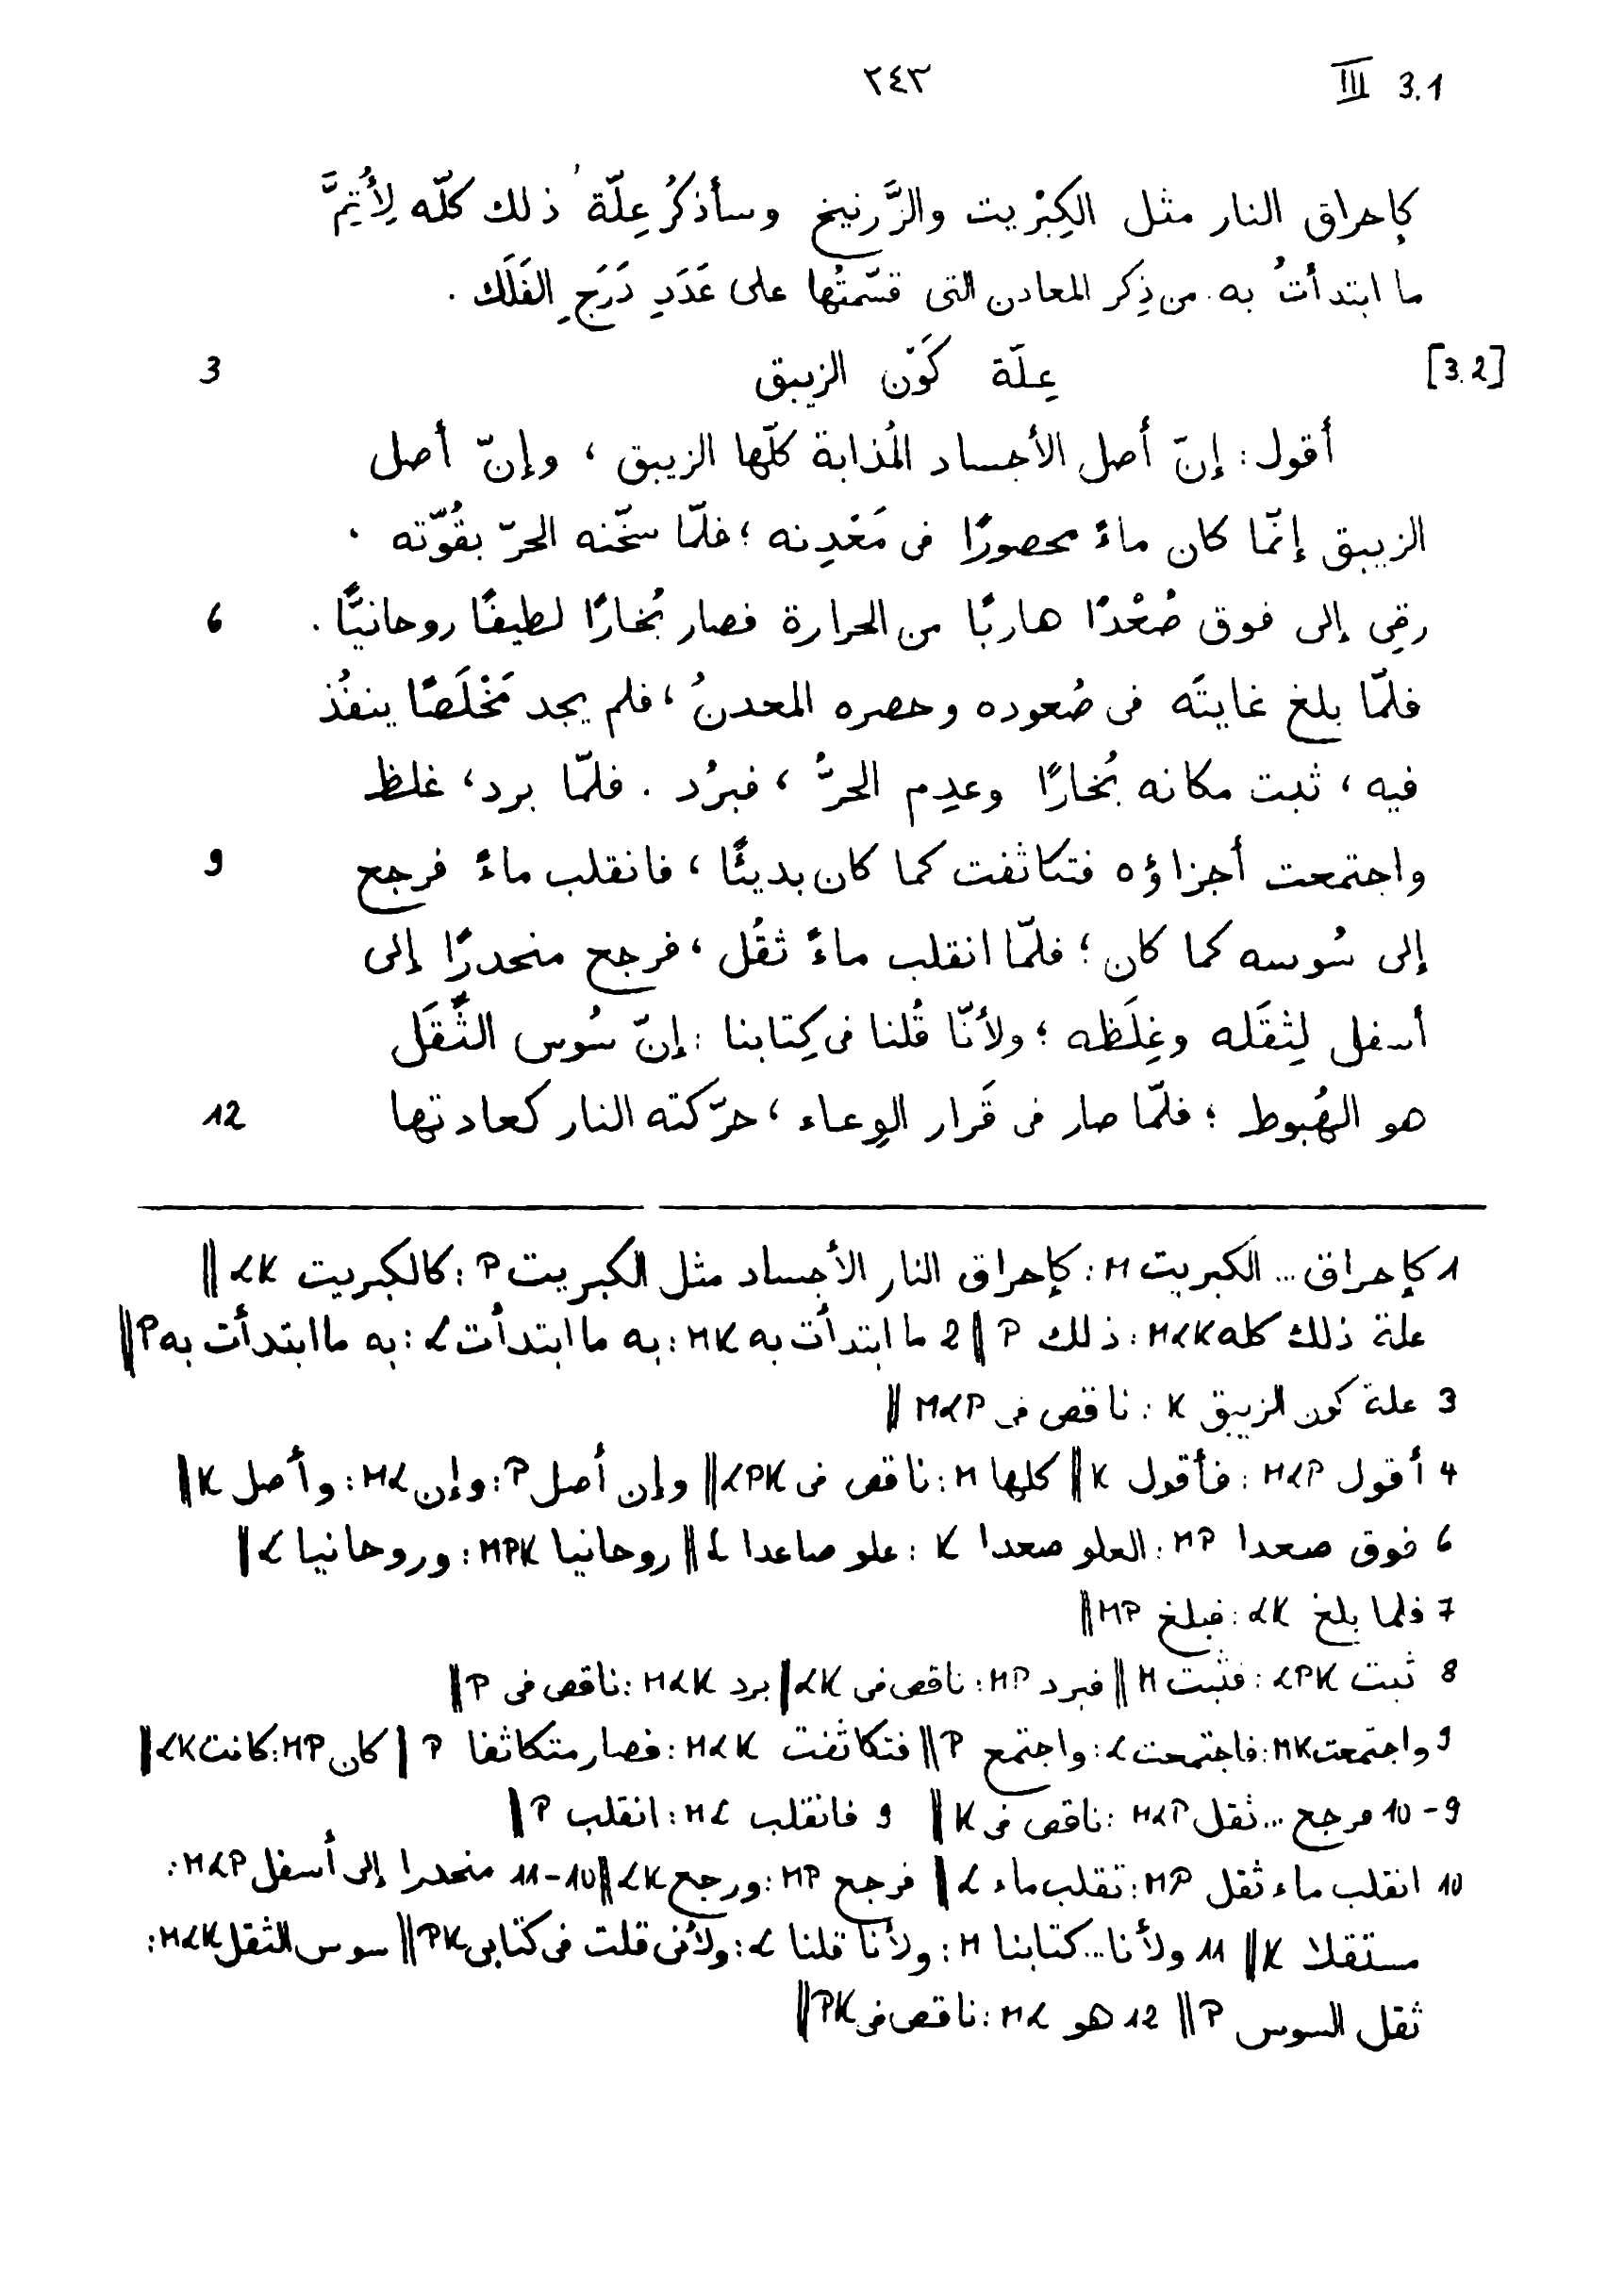 ٢٤٣ III 3.1
كإحراق النار مثل الكِبْريت والزَّرنيخ وسأذكرُ عِلّة ذلك كلّه لِأُتِمَّ
ما ابتدأتُ به من ذِكر المعادن التى قسّمتُها على عَدَدِ دَرَجِ الفَلَك .
[3.2] عِلّة كَوْن الزيبق 3
أقول : إنّ أصل الأجساد المُذابة كلّها الزيبق ، وإنّ أصل
الزيبق إنّما كان ماءً محصورًا فى مَعْدِنه ؛ فلمّا سخّنه الحرّ بقُوّته ،
رقِى إلى فوق صُعْدًا هاربًا من الحرارة فصار بُخارًا لطيفًا روحانيًّا . 6
فلمّا بلغ غايتَه فى صُعوده وحصره المعدنُ ، فلم يجد مَخْلَصًا ينفُذ
فيه ، ثبت مكانه بُخارًا وعدِم الحرُّ ، فبرُد . فلمّا برد ، غلظ
واجتمعت أجزاؤه فتكاثفت كما كان بديئًا ، فانقلب ماءً فرجع 9
إلى سُوسه كما كان ؛ فلمّا انقلب ماءً ثقُل ، فرجع منحدرًا إلى
أسفل لِثِقَله وغِلَظه ؛ ولأنّا قُلنا فى كِتابنا : إنّ سُوس الثِّقَل
هو الهُبوط ؛ فلمّا صار فى قَرار الوِعاء ، حرّكته النار كعادتها 12
1 كإحراق ... الكبريت M : كإحراق النار الأجساد مثل الكبريت P : كالكبريت LK ||
علة ذلك كله MLK : ذلك P || 2 ما ابتدأت به MK : به ما ابتدأت L : به ما ابتدأت به P ||
3 علة كون الزيبق K : ناقص فى MLP ||
4 أقول MLP : فأقول K || كلها M : ناقص فى LPK || وإن أصل P : وإن ML : وأصل K ||
6 فوق صعدا MP : العلو صعدا K : علو صاعدا L || روحانيا MPK : وروحانيا L ||
7 فلما بلغ LK : فبلغ MP ||
8 ثبت LPK : فثبت M || فبرد MP : ناقص فى LK || برد MLK : ناقص فى P ||
9 واجتمعت MK : فاجتمعت L : واجتمع P || فتكاثفت MLK : فصار متكاثفا P || كان MP : كانت LK ||
9-10 فرجع ... ثقل MLP : ناقص فى K || 9 فانقلب ML : انقلب P ||
10 انقلب ماء ثقل MP : تقلب ماء L || فرجع MP : ورجع LK || 10-11 منحدرا إلى أسفل MLP :
مستقلا K || 11 ولأنا ... كتابنا M : ولأنا قلنا L : ولأنى قلت فى كتابى PK || سوس الثقل MLK :
ثقل السوس P || 12 هو ML : ناقص فى PK ||